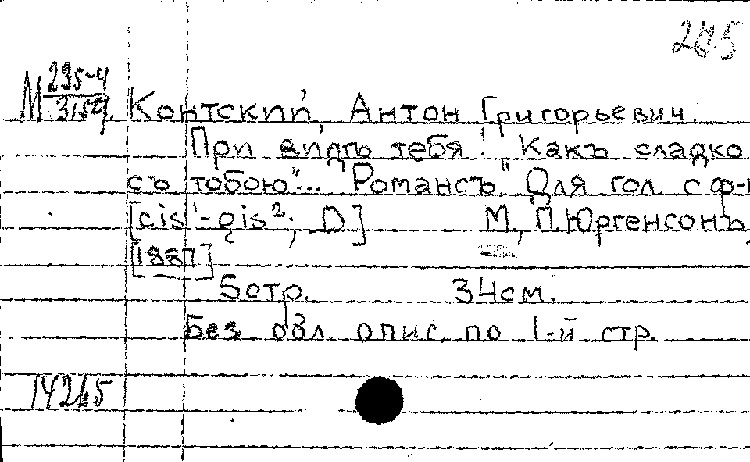 285
М 235-4
3159
Контский, Антон Григорьевич.
При видѣ тебя! "Какъ сладко
съ тобою"... "Романсъ". Для гол. с ф-п
[cis¹-gis²; D] М., П. Юргенсонъ,
[1887]
5 стр. 34 см.
Без обл. опис. по 1-й стр.
14265